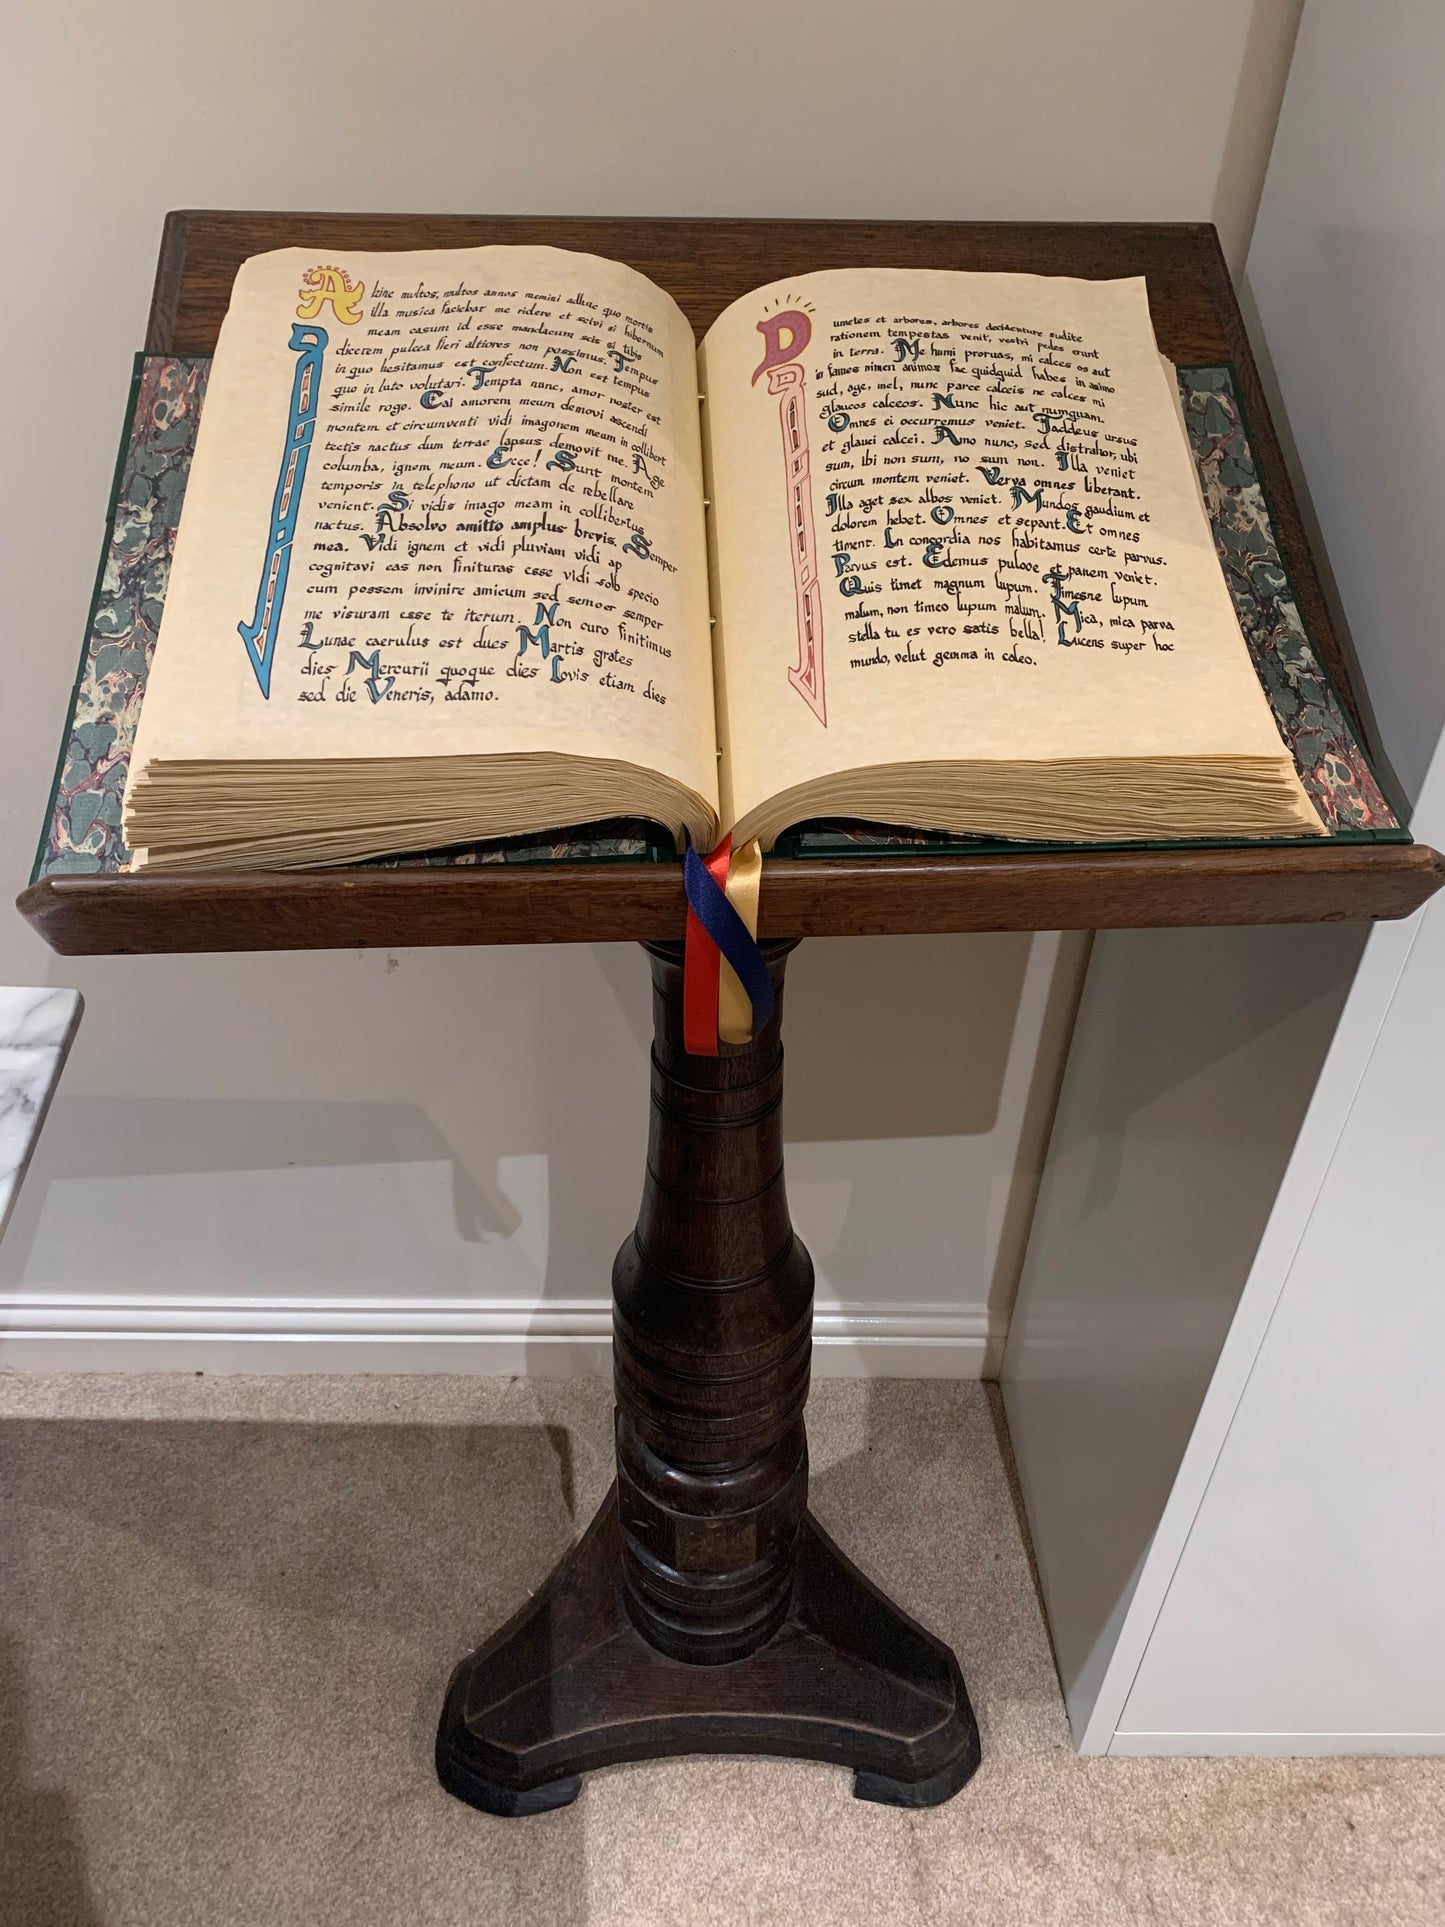 Abine multos, multos annos memini adhuc quo mortis
illa musica faciebar me ridere et scivi si hibernum
meam casum id esse mandacum scis si tibis
dicerem pulcea fieri altiores non possimus. Tempus
in quo hesitamus est confectum. Non est tempus
quo in luto volutari. Tempta nunc, amor noster est
simile rogo. Cal amorem meum demovi ascendi
montem et circumventi vidi imagonem meum in collibert
tectis nactus dum terrae lapsus demovit me. Age
columba, ignem meum. Ecce! Sunt montem
temporis in telephono ut dictam de rebellare
venient. Si vidis imago meam in collibertus
nactus. Absolvo amitto amplus brevis. Semper
mea. Vidi ignem et vidi pluviam vidi ap
cognitavi eas non finituras esse vidi sob specio
cum possem invinire amicum sed semoer semper
me visuram esse te iterum. Non curo finitimus
Lunae caerulus est dues Martis grates
dies Mercurii quoque dies Iovis etiam dies
sed die Veneris, adamo.
Dumeles et arbores, arbores decidenture sudite
rationem tempestas venit, vestri pedes erunt
in terra. Me humi proruas, mi calces os aut
in fames nimen animos fac quidquid habes in animo
sud, age, mel, nunc parce calceis ne calces mi
glaucos calceos. Nunc hic aut numquam.
Omnes ei occurremus veniet. Taddeus ursus
et glauci calcei. Amo nunc, sed distrahor, ubi
sum, ibi non sum, no sum non. Illa veniet
circum montem veniet. Verva omnes liberant.
Illa aget sex albos veniet. Mundos gaudium et
dolorem hebet. Omnes et sepant. Et omnes
timent. In concordia nos habitamus certe parvus.
Parvus est. Edemus pulooe et panem veniet.
Quis timet magnum lupum. Timesne lupum
malum, non timeo lupum malum. Mica, mica parva
stella tu es vero satis bella! Lucens super hoc
mundo, velut gemma in caleo.